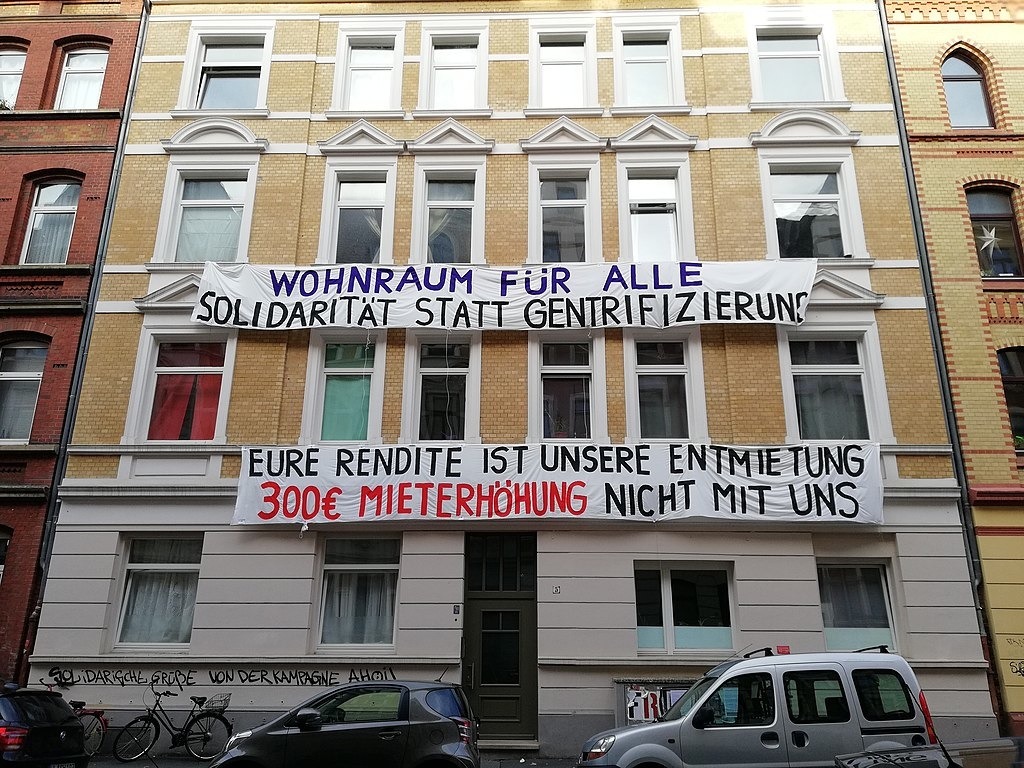 WOHNRAUM FÜR ALLE
SOLIDARITÄT STATT GENTRIFIZIERUNG
EURE RENDITE IST UNSERE ENTMIETUNG
300€ MIETERHÖHUNG NICHT MIT UNS
5
SOLIDARISCHE GRÜßE VON DER KAMPAGNE AHOI!